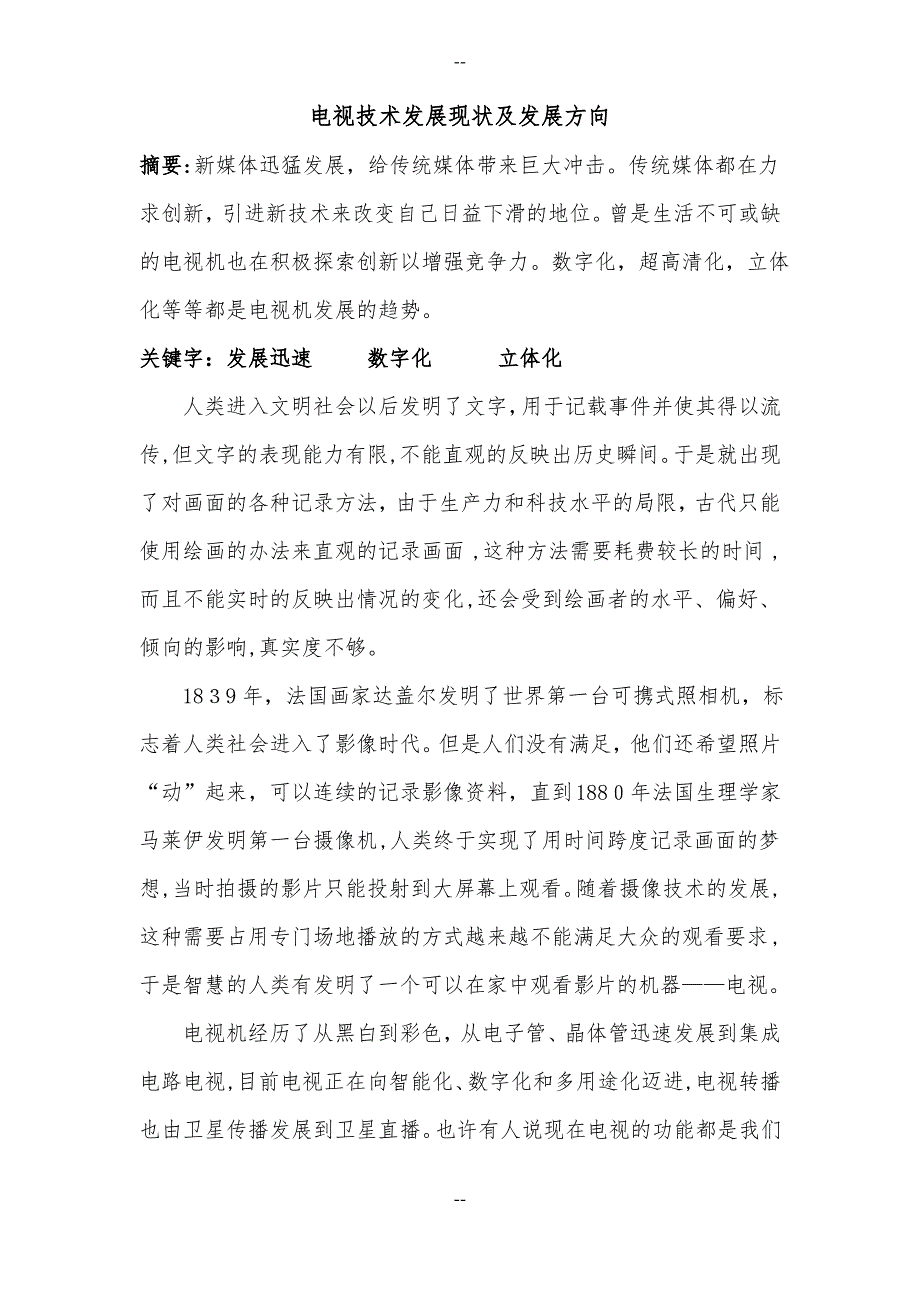 --
电视技术发展现状及发展方向
摘要:新媒体迅猛发展，给传统媒体带来巨大冲击。传统媒体都在力
求创新，引进新技术来改变自己日益下滑的地位。曾是生活不可或缺
的电视机也在积极探索创新以增强竞争力。数字化，超高清化，立体
化等等都是电视机发展的趋势。
关键字：发展迅速 数字化 立体化
人类进入文明社会以后发明了文字,用于记载事件并使其得以流
传,但文字的表现能力有限,不能直观的反映出历史瞬间。于是就出现
了对画面的各种记录方法，由于生产力和科技水平的局限，古代只能
使用绘画的办法来直观的记录画面,这种方法需要耗费较长的时间,
而且不能实时的反映出情况的变化,还会受到绘画者的水平、偏好、
倾向的影响,真实度不够。
1839年，法国画家达盖尔发明了世界第一台可携式照相机，标
志着人类社会进入了影像时代。但是人们没有满足，他们还希望照片
“动”起来，可以连续的记录影像资料，直到1880年法国生理学家
马莱伊发明第一台摄像机,人类终于实现了用时间跨度记录画面的梦
想,当时拍摄的影片只能投射到大屏幕上观看。随着摄像技术的发展,
这种需要占用专门场地播放的方式越来越不能满足大众的观看要求,
于是智慧的人类有发明了一个可以在家中观看影片的机器——电视。
电视机经历了从黑白到彩色，从电子管、晶体管迅速发展到集成
电路电视,目前电视正在向智能化、数字化和多用途化迈进,电视转播
也由卫星传播发展到卫星直播。也许有人说现在电视的功能都是我们
--